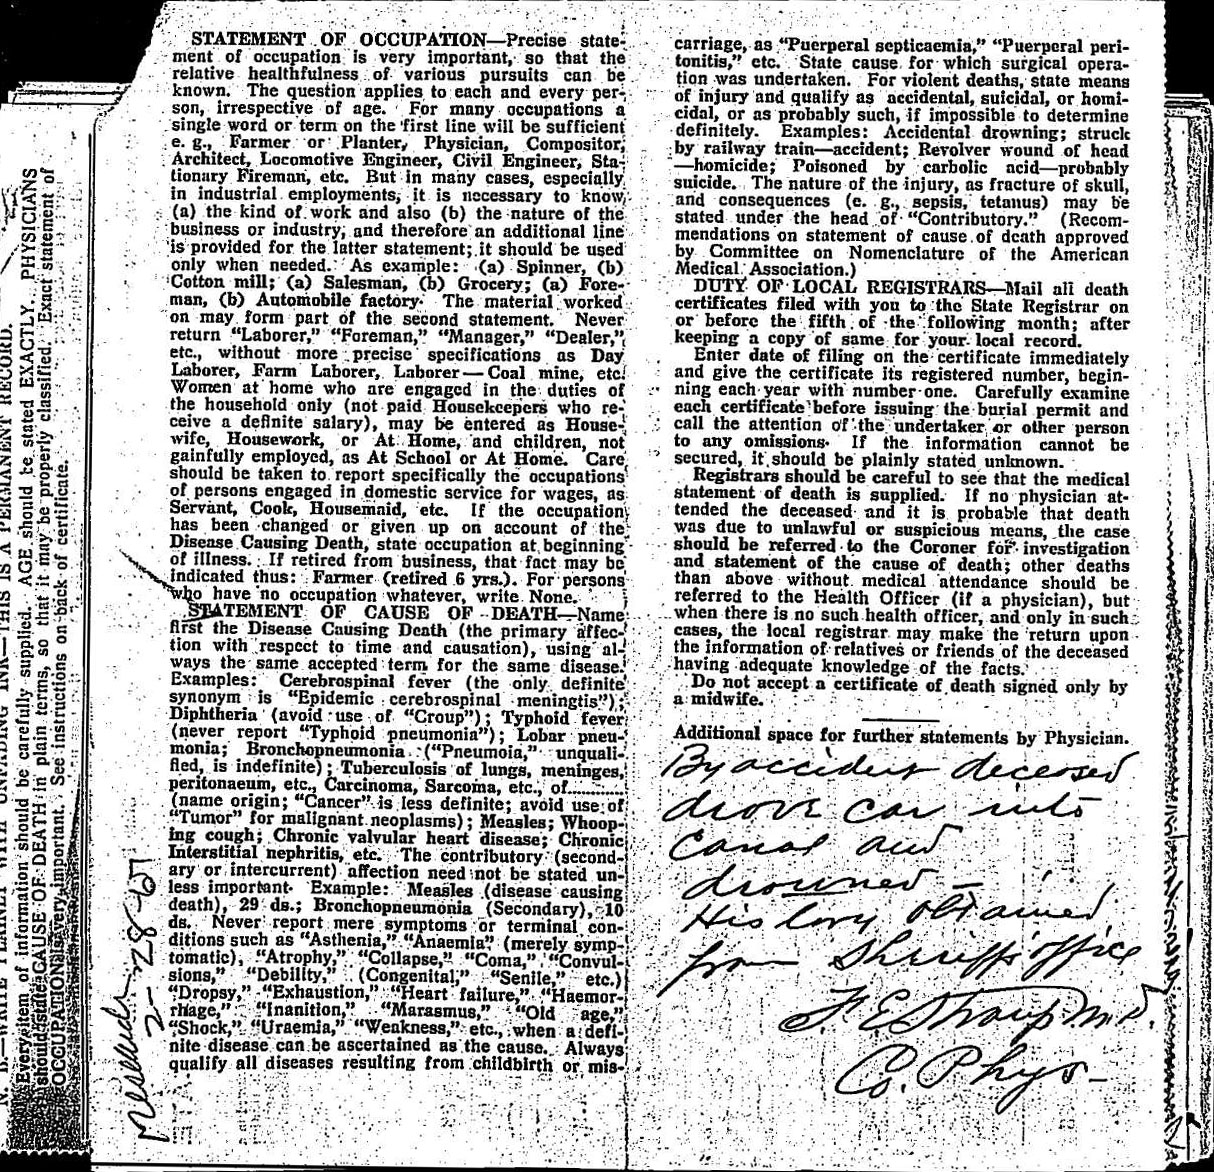 STATEMENT OF OCCUPATION—Precise state-
ment of occupation is very important, so that the
relative healthfulness of various pursuits can be
known. The question applies to each and every per-
son, irrespective of age. For many occupations a
single word or term on the first line will be sufficient
e. g., Farmer or Planter, Physician, Compositor,
Architect, Locomotive Engineer, Civil Engineer, Sta-
tionary Fireman, etc. But in many cases, especially
in industrial employments, it is necessary to know
(a) the kind of work and also (b) the nature of the
business or industry, and therefore an additional line
is provided for the latter statement; it should be used
only when needed. As example: (a) Spinner, (b)
Cotton mill; (a) Salesman, (b) Grocery; (a) Fore-
man, (b) Automobile factory. The material worked
on may form part of the second statement. Never
return "Laborer," "Foreman," "Manager," "Dealer,"
etc., without more precise specifications as Day
Laborer, Farm Laborer, Laborer—Coal mine, etc.
Women at home who are engaged in the duties of
the household only (not paid Housekeepers who re-
ceive a definite salary), may be entered as House-
wife, Housework, or At Home, and children, not
gainfully employed, as At School or At Home. Care
should be taken to report specifically the occupations
of persons engaged in domestic service for wages, as
Servant, Cook, Housemaid, etc. If the occupation
has been changed or given up on account of the
Disease Causing Death, state occupation at beginning
of illness. If retired from business, that fact may be
indicated thus: Farmer (retired 6 yrs.). For persons
who have no occupation whatever, write None.
STATEMENT OF CAUSE OF DEATH—Name
first the Disease Causing Death (the primary affec-
tion with respect to time and causation), using al-
ways the same accepted term for the same disease.
Examples: Cerebrospinal fever (the only definite
synonym is "Epidemic cerebrospinal meningtis");
Diphtheria (avoid use of "Croup"); Typhoid fever
(never report "Typhoid pneumonia"); Lobar pneu-
monia; Bronchopneumonia ("Pneumoia," unquali-
fied, is indefinite); Tuberculosis of lungs, meninges,
peritonaeum, etc., Carcinoma, Sarcoma, etc., of............
(name origin; "Cancer" is less definite; avoid use of
"Tumor" for malignant neoplasms); Measles; Whoop-
ing cough; Chronic valvular heart disease; Chronic
Interstitial nephritis, etc. The contributory (second-
ary or intercurrent) affection need not be stated un-
less important. Example: Measles (disease causing
death), 29 ds.; Bronchopneumonia (Secondary), 10
ds. Never report mere symptoms or terminal con-
ditions such as "Asthenia," "Anaemia" (merely symp-
tomatic), "Atrophy," "Collapse," "Coma," "Convul-
sions," "Debility," (Congenital," "Senile," etc.)
"Dropsy," "Exhaustion," "Heart failure," "Haemor-
rhage," "Inanition," "Marasmus," "Old age,"
"Shock," "Uraemia," "Weakness," etc., when a defi-
nite disease can be ascertained as the cause. Always
qualify all diseases resulting from childbirth or mis-
carriage, as "Puerperal septicaemia," "Puerperal peri-
tonitis," etc. State cause for which surgical opera-
tion was undertaken. For violent deaths, state means
of injury and qualify as accidental, suicidal, or homi-
cidal, or as probably such, if impossible to determine
definitely. Examples: Accidental drowning; struck
by railway train—accident; Revolver wound of head
—homicide; Poisoned by carbolic acid—probably
suicide. The nature of the injury, as fracture of skull,
and consequences (e. g., sepsis, tetanus) may be
stated under the head of "Contributory." (Recom-
mendations on statement of cause of death approved
by Committee on Nomenclature of the American
Medical Association.)
DUTY OF LOCAL REGISTRARS—Mail all death
certificates filed with you to the State Registrar on
or before the fifth of the following month; after
keeping a copy of same for your local record.
Enter date of filing on the certificate immediately
and give the certificate its registered number, begin-
ning each year with number one. Carefully examine
each certificate before issuing the burial permit and
call the attention of the undertaker or other person
to any omissions. If the information cannot be
secured, it should be plainly stated unknown.
Registrars should be careful to see that the medical
statement of death is supplied. If no physician at-
tended the deceased and it is probable that death
was due to unlawful or suspicious means, the case
should be referred to the Coroner for investigation
and statement of the cause of death; other deaths
than above without medical attendance should be
referred to the Health Officer (if a physician), but
when there is no such health officer, and only in such
cases, the local registrar may make the return upon
the information of relatives or friends of the deceased
having adequate knowledge of the facts.
Do not accept a certificate of death signed only by
a midwife.
Additional space for further statements by Physician.
By accident deceased
drove car into
Canal and
drowned —
History obtained
from Sheriffs office
F. E. M.D.
Co. Phys-
2-28-67
N. B.—WRITE PLAINLY WITH UNFADING INK—THIS IS A PERMANENT RECORD.
Every item of information should be carefully supplied. AGE should be stated EXACTLY. PHYSICIANS
should state CAUSE OF DEATH in plain terms, so that it may be properly classified. Exact statement of
OCCUPATION is very important. See instructions on back of certificate.